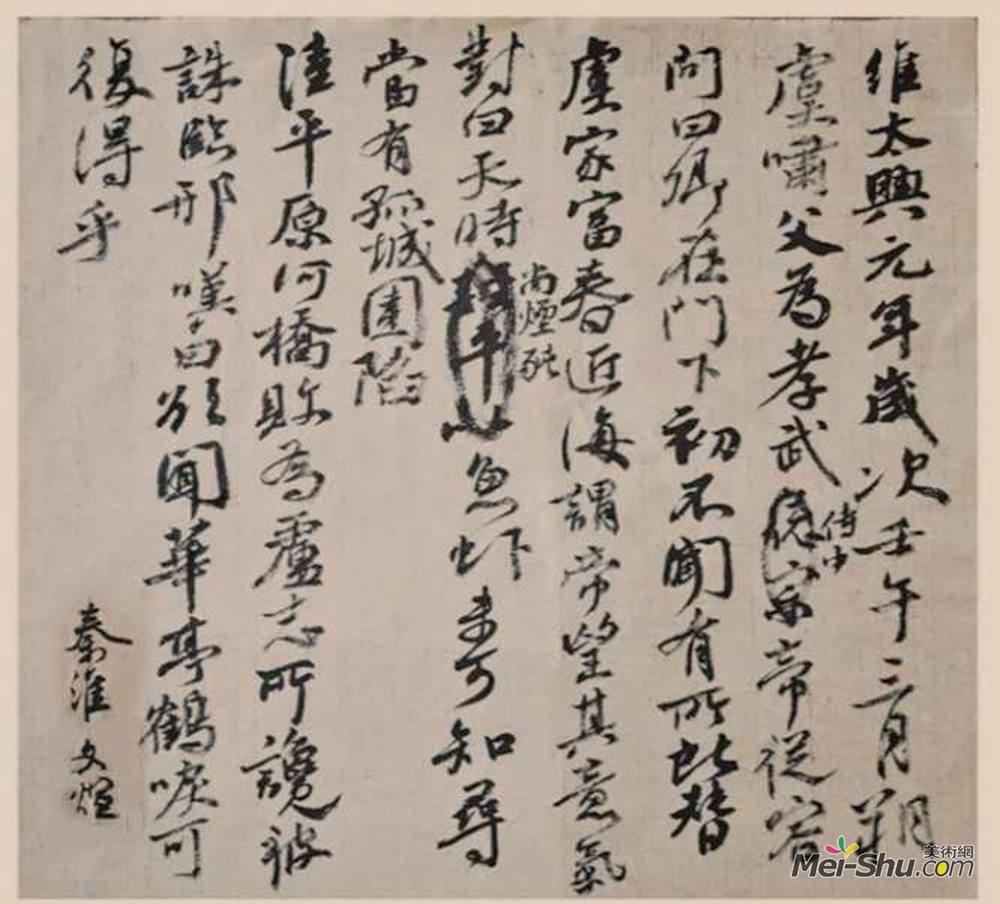 維太興元年歲次壬午二月朔
虞嘯父為孝武侍中帝從容
問曰卿在門下初不聞有所獻替
虞家富春近海謂帝望其意氣
對曰天時尚煙魚蝦未可知尋
當有孤城圍陷
陸平原河橋敗為盧志所讒被
誅臨刑嘆曰欲聞華亭鶴唳可
復得乎
秦淮 文煊
美術網
Mei-Shu.com